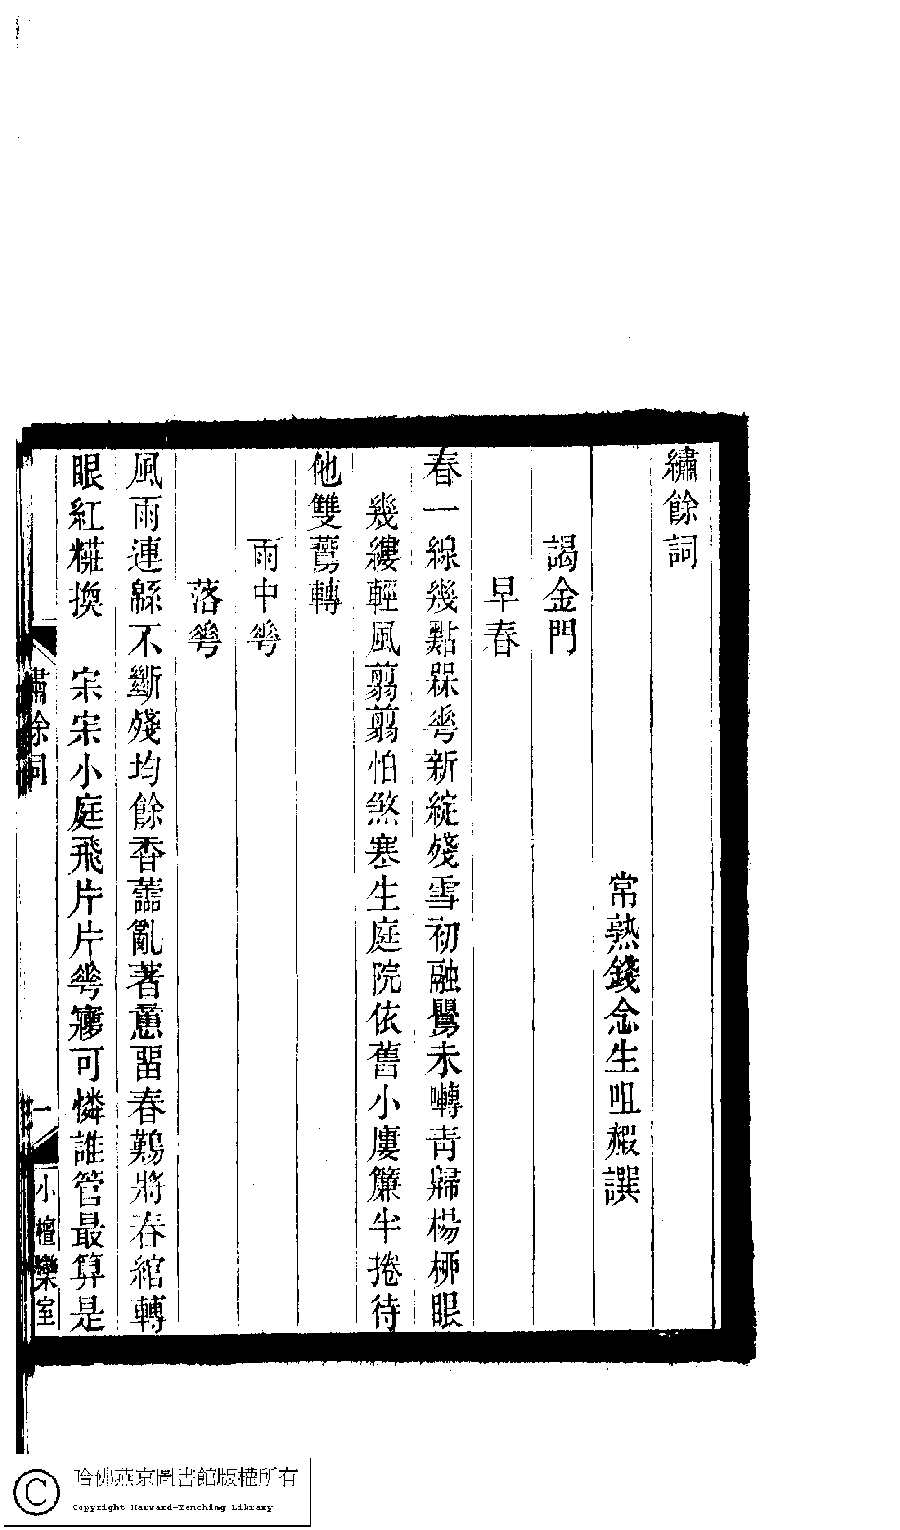 繡餘詞
常熟錢念生咀霞譔
謁金門
早春
春一線幾點槑蕚新綻殘雪初融鸎未囀青歸楊柳眼
幾縷輕風翦翦怕煞寒生庭院依舊小廔簾半捲待
他雙鷰轉
雨中蕚
落蕚
風雨連緜不斷殘均餘香蘦亂著意畱春鷄將春綰轉
眼紅糚換　宋宋小庭飛片片蕚㝱可憐誰管最算是
繡餘詞
一
小檀欒室
哈佛燕京圖書館版權所有
Copyright Harvard-Yenching Library